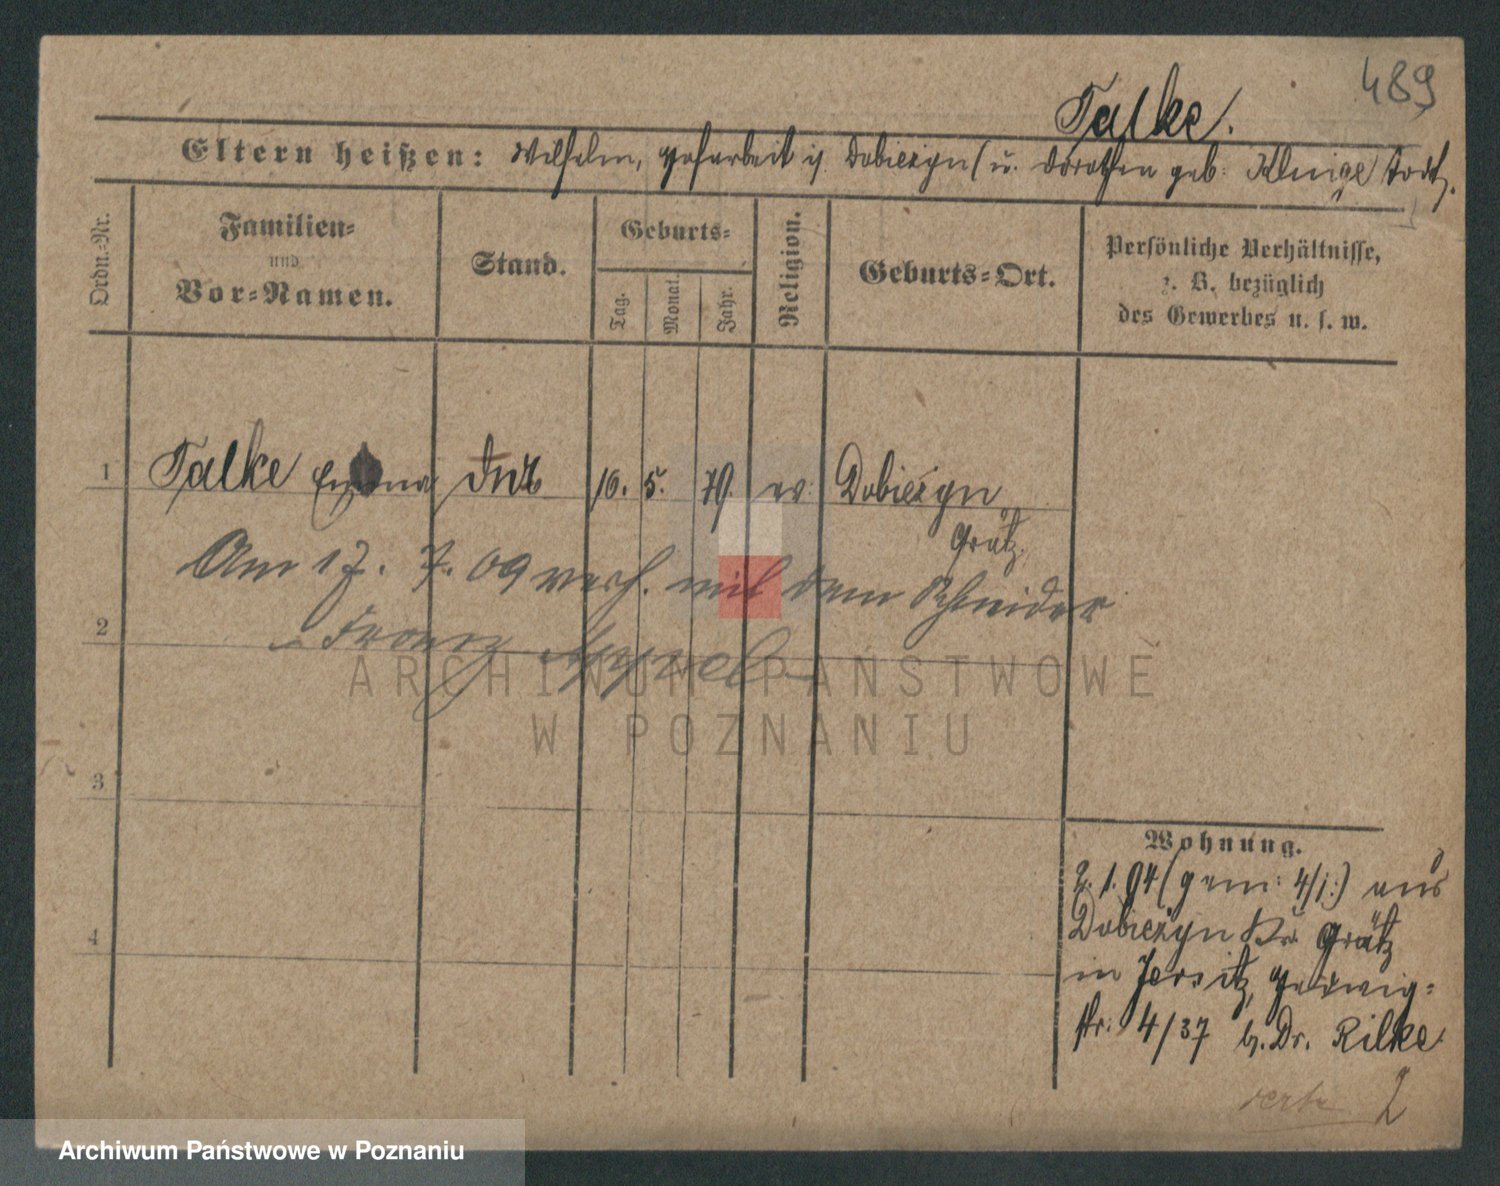 489
Talke.
Eltern heißen: Wilhelm, Dobiezyn (u. Dorothea geb. todt.
Ordn.-Nr.
Familien-
und
Vor-Namen.
Stand.
Geburts-
Tag.
Monat.
Jahr.
Religion.
Geburts-Ort.
Persönliche Verhältnisse,
z. B. bezüglich
des Gewerbes u. s. w.
1 Talke 10. 5. 79. ev. Dobiezyn
Grätz.
Am 17. 7. 09 verh. mit dem Schneider
2
Franz
ARCHIWUM PAŃSTWOWE
W POZNANIU
3
4
Wohnung.
2. 1. 94 (gem: 4/1.) aus
Dobiezyn Kr. Grätz
in Jersitz, Hedwig-
str. 4/37 b. Dr. Rilke
verte 2
Archiwum Państwowe w Poznaniu